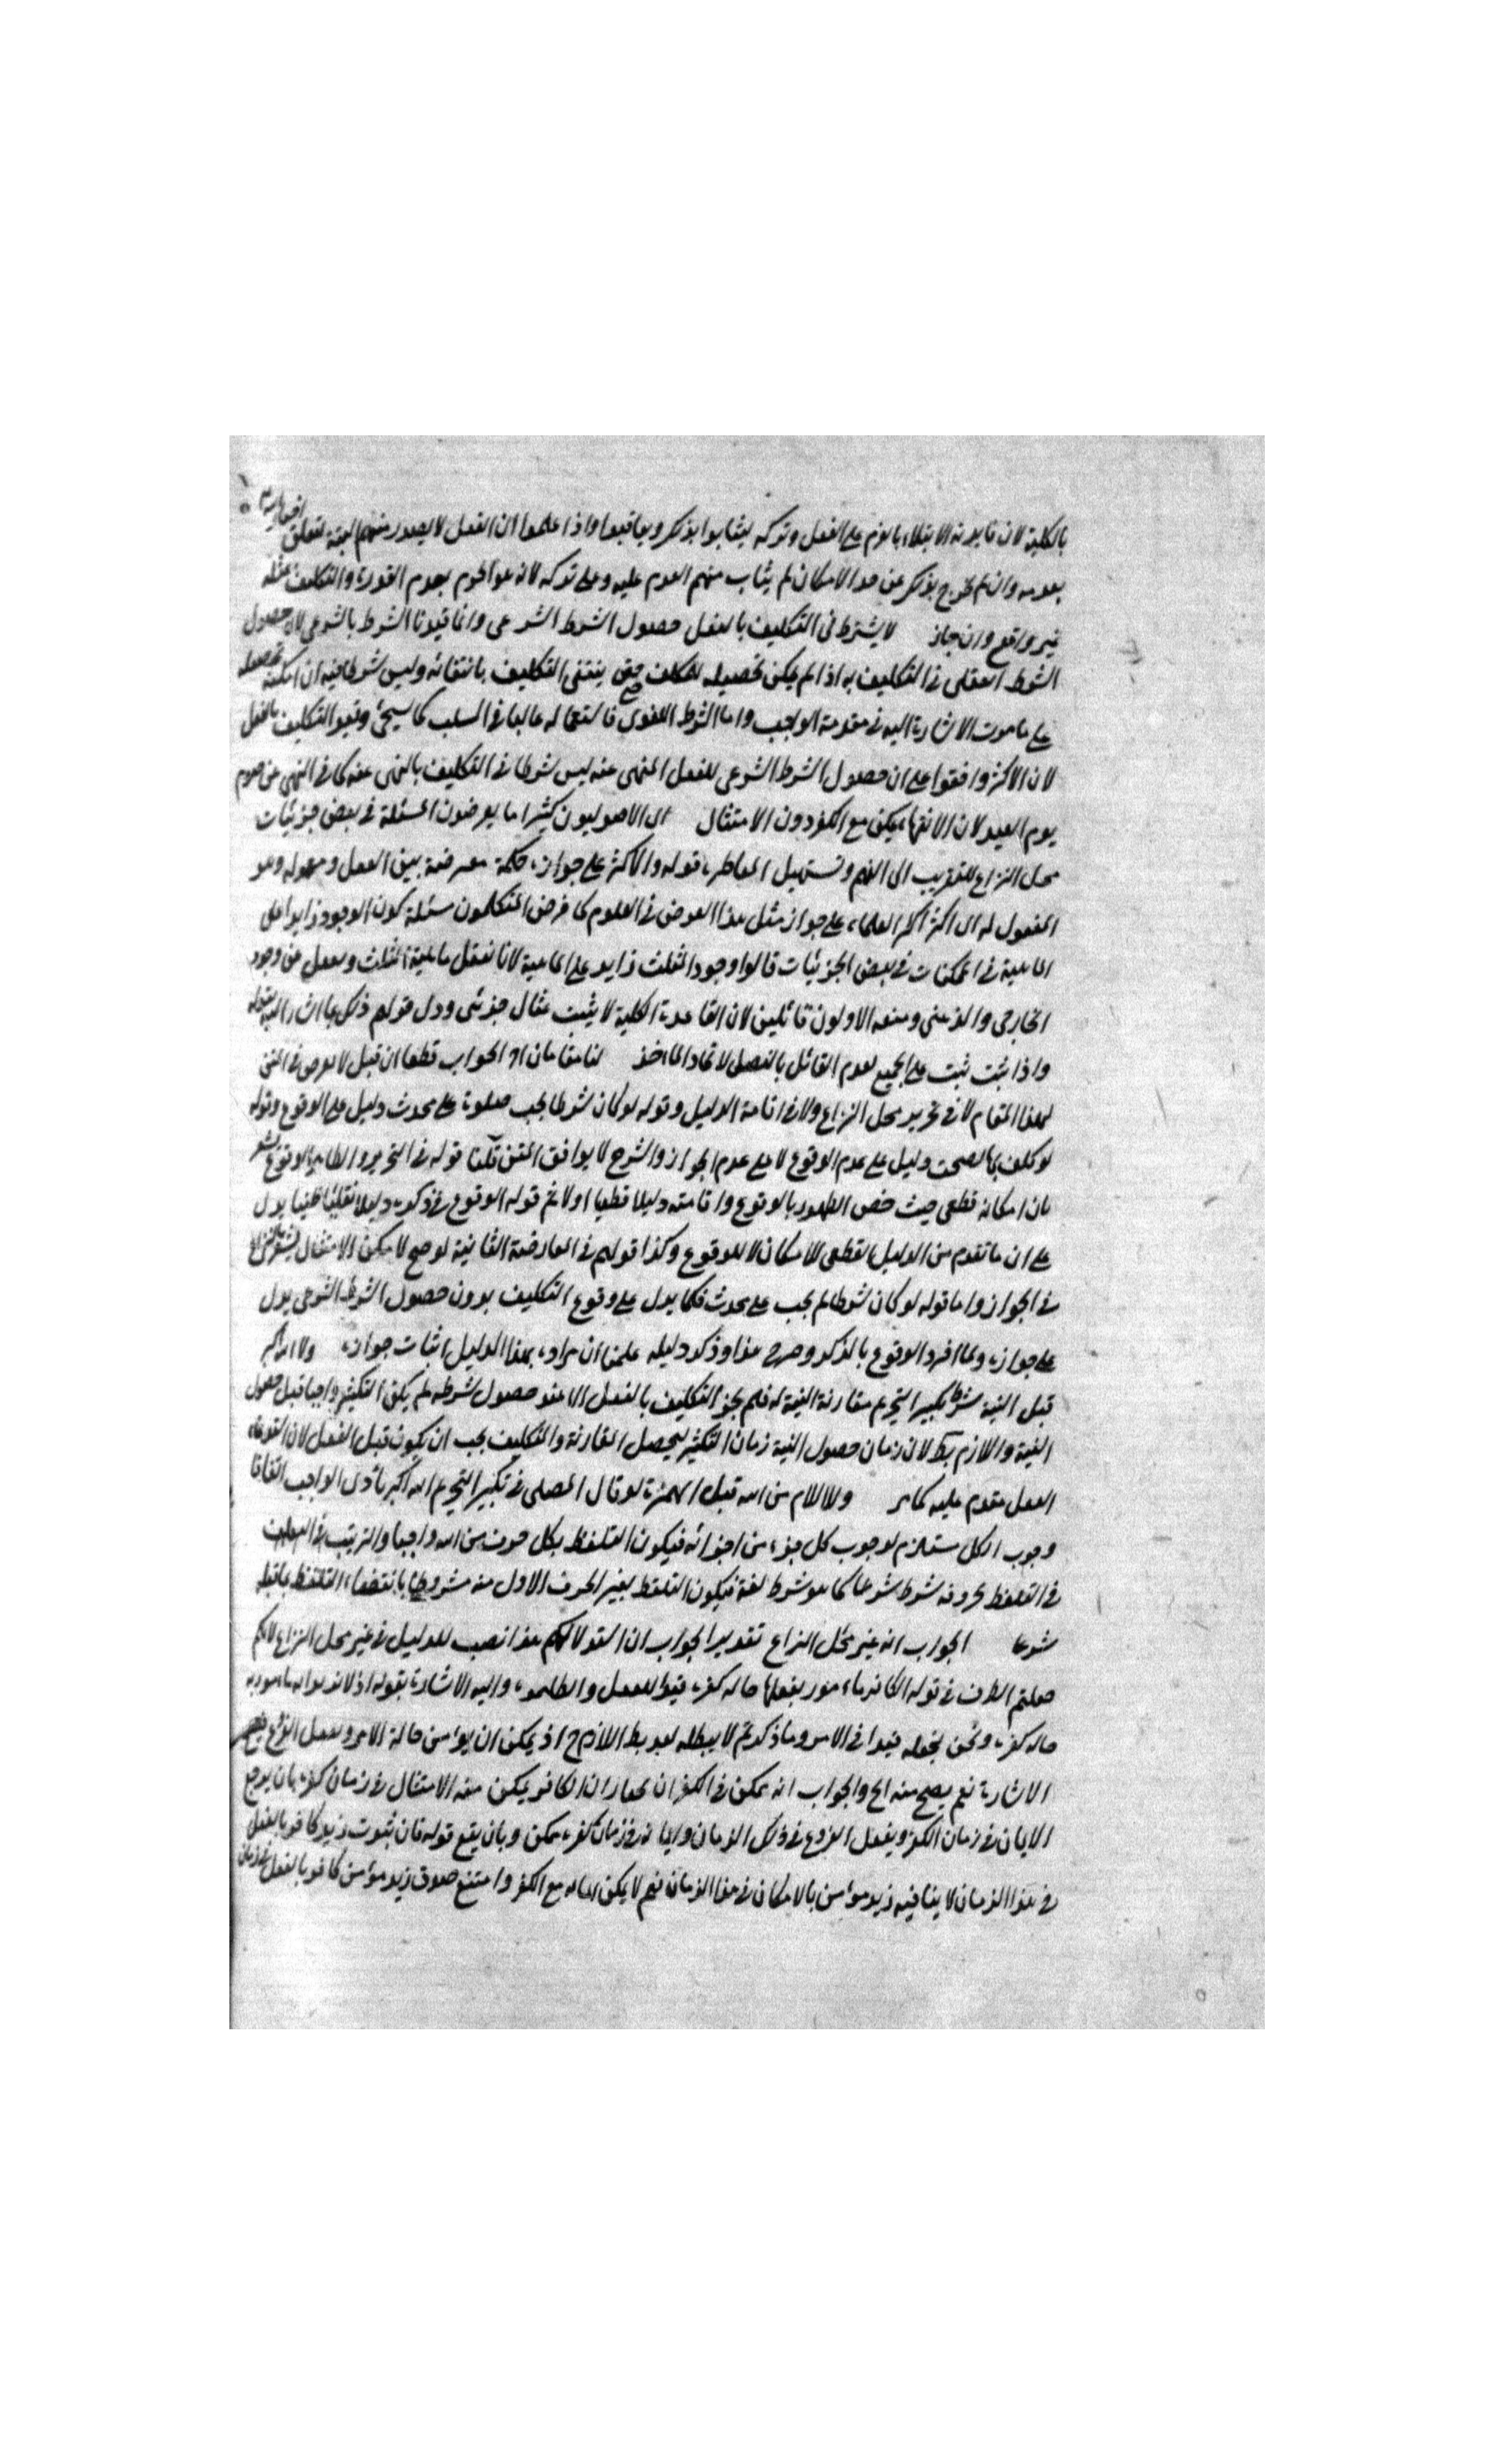 بالكلية لان فايدته الابتلاء بالعزم على الفعل وتركه ليثابوا بذكر ويعاقبوا واذا علموا ان الفعل لا يصدر منهم البتة لتعلق
بعدمه وان لم يخرج بذكر عن حد الامكان لم يثاب منهم العزم عليه وعلى تركه لانه هو الجزم بعدم القدرة والتكليف بمثله
غير واقع وان جاز لا يشترط في التكليف بالفعل حصول الشرط الشرعي وانما قيدنا الشرط بالشرعي لان حصول
الشرط العقلي في التكليف به اذا لم يكن تحصيله للمكلف حتى ينتفي التكليف بانتفائه وليس شرطا فيه ان امكنه تحصيله
على ما مرت الاشارة اليه في مقدمة الواجب واما الشرط اللغوي فاستعماله غالبا في السبب كما سيجئ وقيد التكليف بالفعل
لان الاكثر وافقوا على ان حصول الشرط الشرعي للفعل المنهى عنه ليس شرطا في التكليف بالنهى عنه كما في النهى عن صوم
يوم العيد لان الانتهاء يمكن مع الكفر دون الامتثال اى الاصوليون كثيرا ما يعرضون المسئلة في بعض جزئيات
محل النزاع للتقريب الى الفهم وتسهيل المناظرة قوله والاكثر على جوازه حكمة معرضة بين الفعل ومعموله وهو
المفعول له اى اكثر العلماء على جواز مثل هذا الفرض في العلوم كما فرض المتكلمون مسئلة كون الوجود زايدا على
الماهية في الممكنات في بعض الجزئيات قالوا وجود المثلث زايد على الماهية لانا نعقل ماهية المثلث ونغفل عن وجوده
الخارجي والذهني ومنعه الاولون قائلين لان القاعدة الكلية لا يثبت بمثال جزئى ودل قولهم ذلك بما اشار اليه بقوله
واذا ثبت ثبت على الجميع لعدم القائل بالفصل لاتحاد الماخذ لنا مقامان اه الجواب قطعا ان قيل لا تعرض في المتن
لهذا المقام لا في تحرير محل النزاع ولا في اقامة الدليل وقوله لو كان شرطا لم يجب صلوة على محدث دليل على الوقوع وقوله
لو كلف بها لصحت دليل على عدم الوقوع لا على عدم الجواز والشرح لا يوافق المتن قلنا قوله في التحرير والظاهر الوقوع يشعر
بان امكانه قطعي حيث خص الظهور بالوقوع واقامته دليلا قطعيا اولا ثم قوله الوقوع في ذكره دليلا نقليا ظنيا يدل
على ان ما تقدم من الدليل القطعى للامكان لا للوقوع وكذا قولهم في المعارضة الثانية لو صح لامكن الامتثال يشعر بالنزاع
في الجواز واما قوله لو كان شرطا لم يجب على محدث فكما يدل على وقوع التكليف بدون حصول الشرط الشرعي يدل
على جوازه ولما افرد الوقوع بالذكر وصرح هذا وذكر دليله علمنا ان مراده بهذا الدليل اثبات جوازه ولا الله اكبر
قبل النية شرط تكبير التحريم مقارنة النية له فلم يجز التكليف بالفعل الا عند حصول شرطه لم يكن التكبير واجبا قبل حصول
النية واللازم بط لان زمان حصول النية زمان التكبير ليحصل المقارنة والتكليف يجب ان يكون قبل الفعل لان القدرة على
الفعل مقدم عليه كما مر ولا اللام من الله قبل الهمزة لو قال المصلى في تكبير التحريم الله اكبر تأدى الواجب اتفاقا
وجوب الكل مستلزم لوجوب كل جزء من اجزائه فيكون التلفظ بكل حرف من الله واجبا والترتيب
في التلفظ بحروفه شرط شرعا كما هو شرط لغة فيكون التلفظ بغير الحرف الاول منه مشروطا بانقضاء التلفظ بما قبله
شرعا الجواب انه غير محل النزاع تقدير الجواب ان استدلالكم هذا نصب للدليل في غير محل النزاع لانكم
جعلتم الظرف في قوله الكافر مأمور بفعلها حالة كفره قيدا للفعل واليه الاشارة بقوله اذ لا نريد انه مأمور به
حالة كفره ونحن نجعله قيدا في الامر وما ذكرتم لا يبطله لعدم بط اللازم ح اذ يمكن ان يؤمن حالة الامر ويفعل الفروع
الاشارة نعم يصح منه الخ والجواب انه يمكن في الكفر ان الكافر يمكن منه الامتثال في زمان كفره بان يوجد
الايمان في زمان الكفر ويفعل الفروع في ذلك الزمان وايمانه في زمان كفره ممكن وبان يقع قوله فان ثبوت زيد كافر بالفعل
في هذا الزمان لا ينافيه زيد مؤمن بالامكان في هذا الزمان نعم لا يمكن ايمانه مع الكفر وامتنع صدق زيد مؤمن كافر بالفعل في زمان